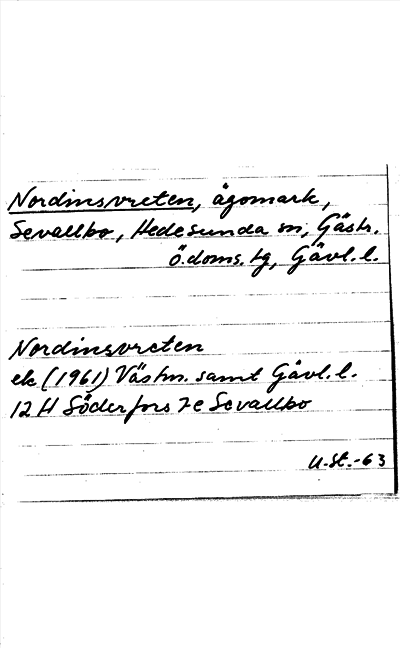 Nordinsvreten, ägomark,
Sevallbo, Hedesunda sn, Gästr.
Ö. doms. tg, Gävl. l.
Nordinsvreten
ek (1961) Västm. samt Gävl. l.
12 H Söderfors 7e Sevallbo
U.St.-63